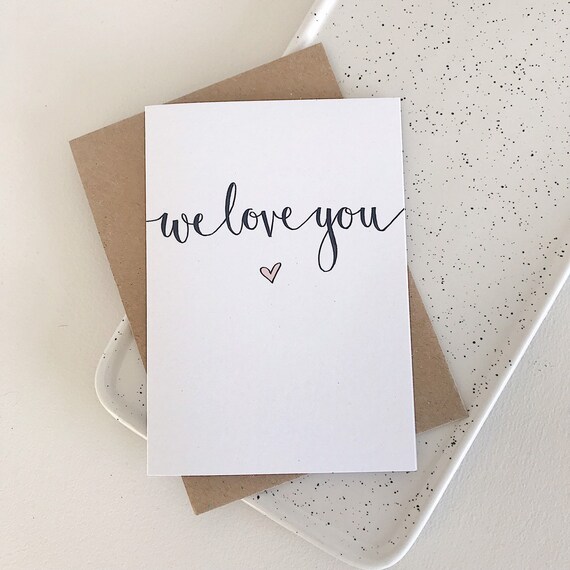 we love you